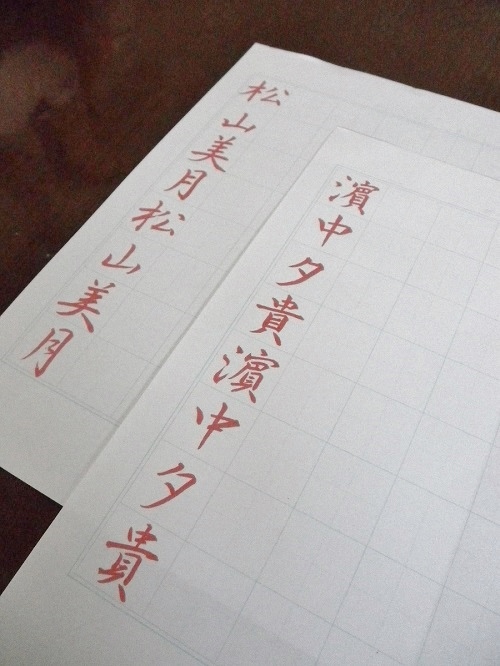 濵中夕貴濵中夕貴
松山美月松山美月